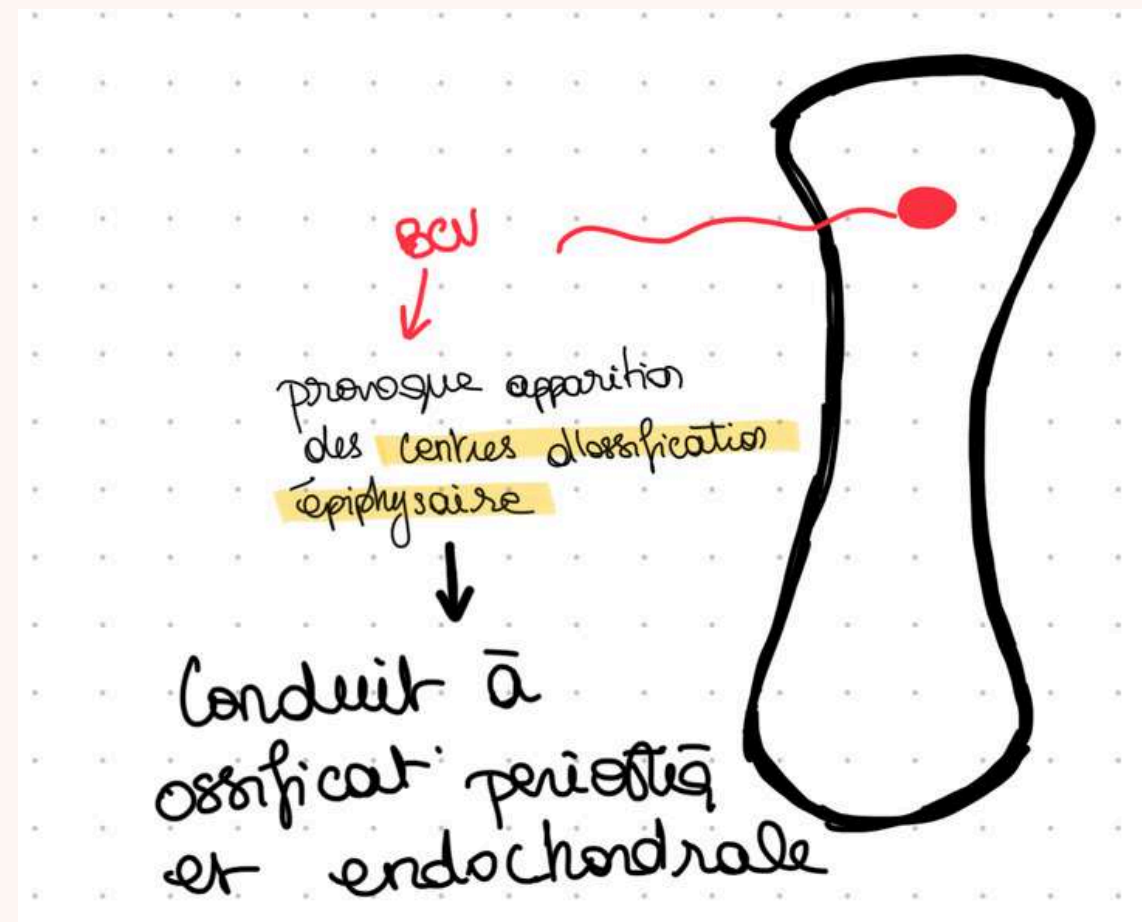 BCV
provoque apparition
des centres d'ossification
épiphysaire
Conduit à
ossificat° periostiq
et endochondrale